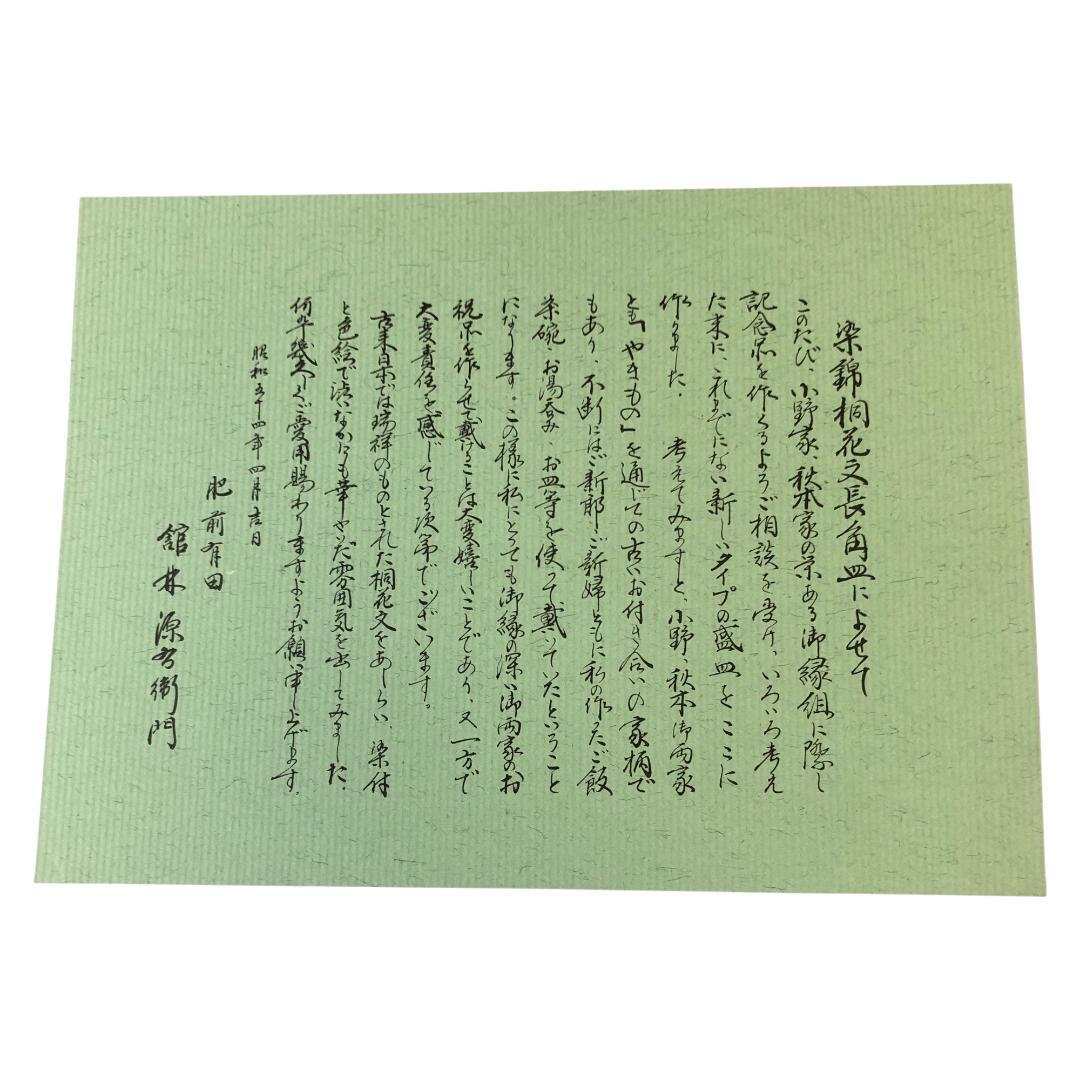 染錦桐花文長角皿によせて
このたび、小野家、秋本家の栄ある御縁組に際し
記念品を作くるようご相談を受け、いろいろ考え
た末に、これまでにない新しいタイプの盛皿をここに
作りました。　考えてみますと、小野、秋本御両家
とも「やきもの」を通じての古いお付き合いの家柄で
もあり、不断にはご新郎、ご新婦ともに私の作ったご飯
茶碗、お湯呑み、お皿等を使って戴いていたということ
になります。この様に私にとっても御縁の深い御両家のお
祝品を作らせて戴けることは大変嬉しいことであり、又一方で
大変責任を感じている次第でございます。
古来日本では瑞祥のものとされた桐花文をあしらい、染付
と色絵で渋いなかにも華やいだ雰囲気を出してみました。
何卒幾久しくご愛用賜わりますようお願い申し上げます。
昭和五十四年四月吉日
肥前有田
舘林源右衛門